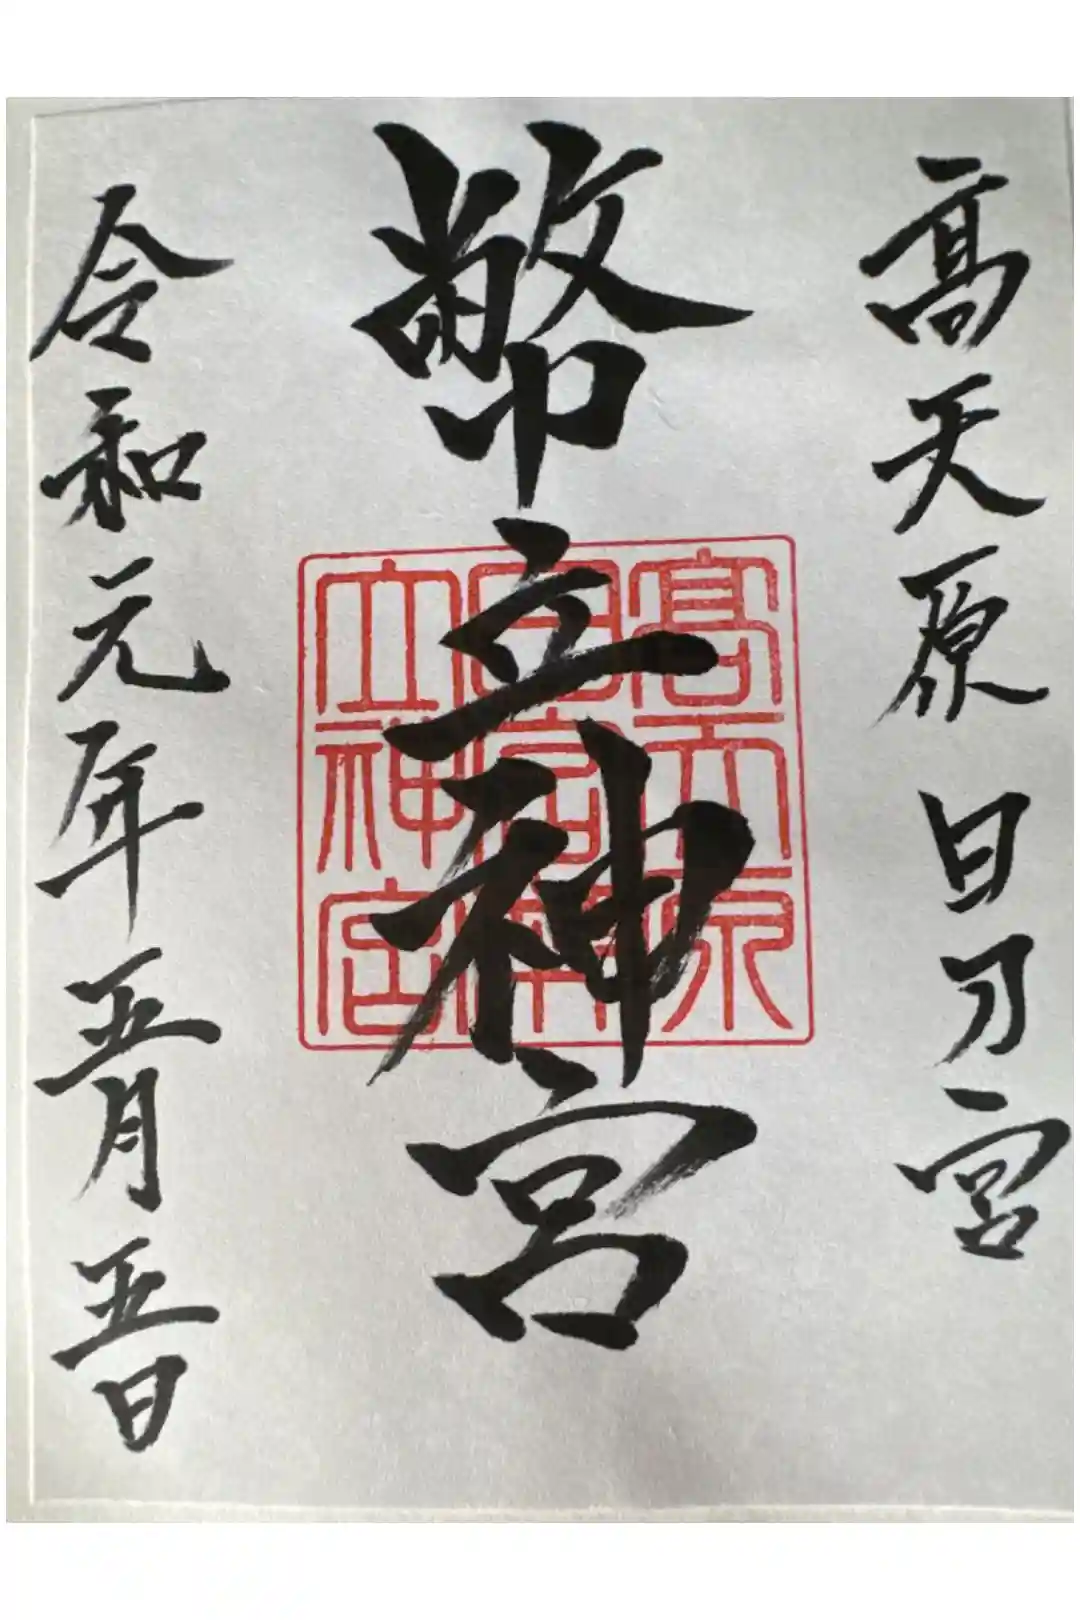 髙天原 日乃宮
幣立神宮
令和元年五月五日
高天原
日宮幣
立神宮